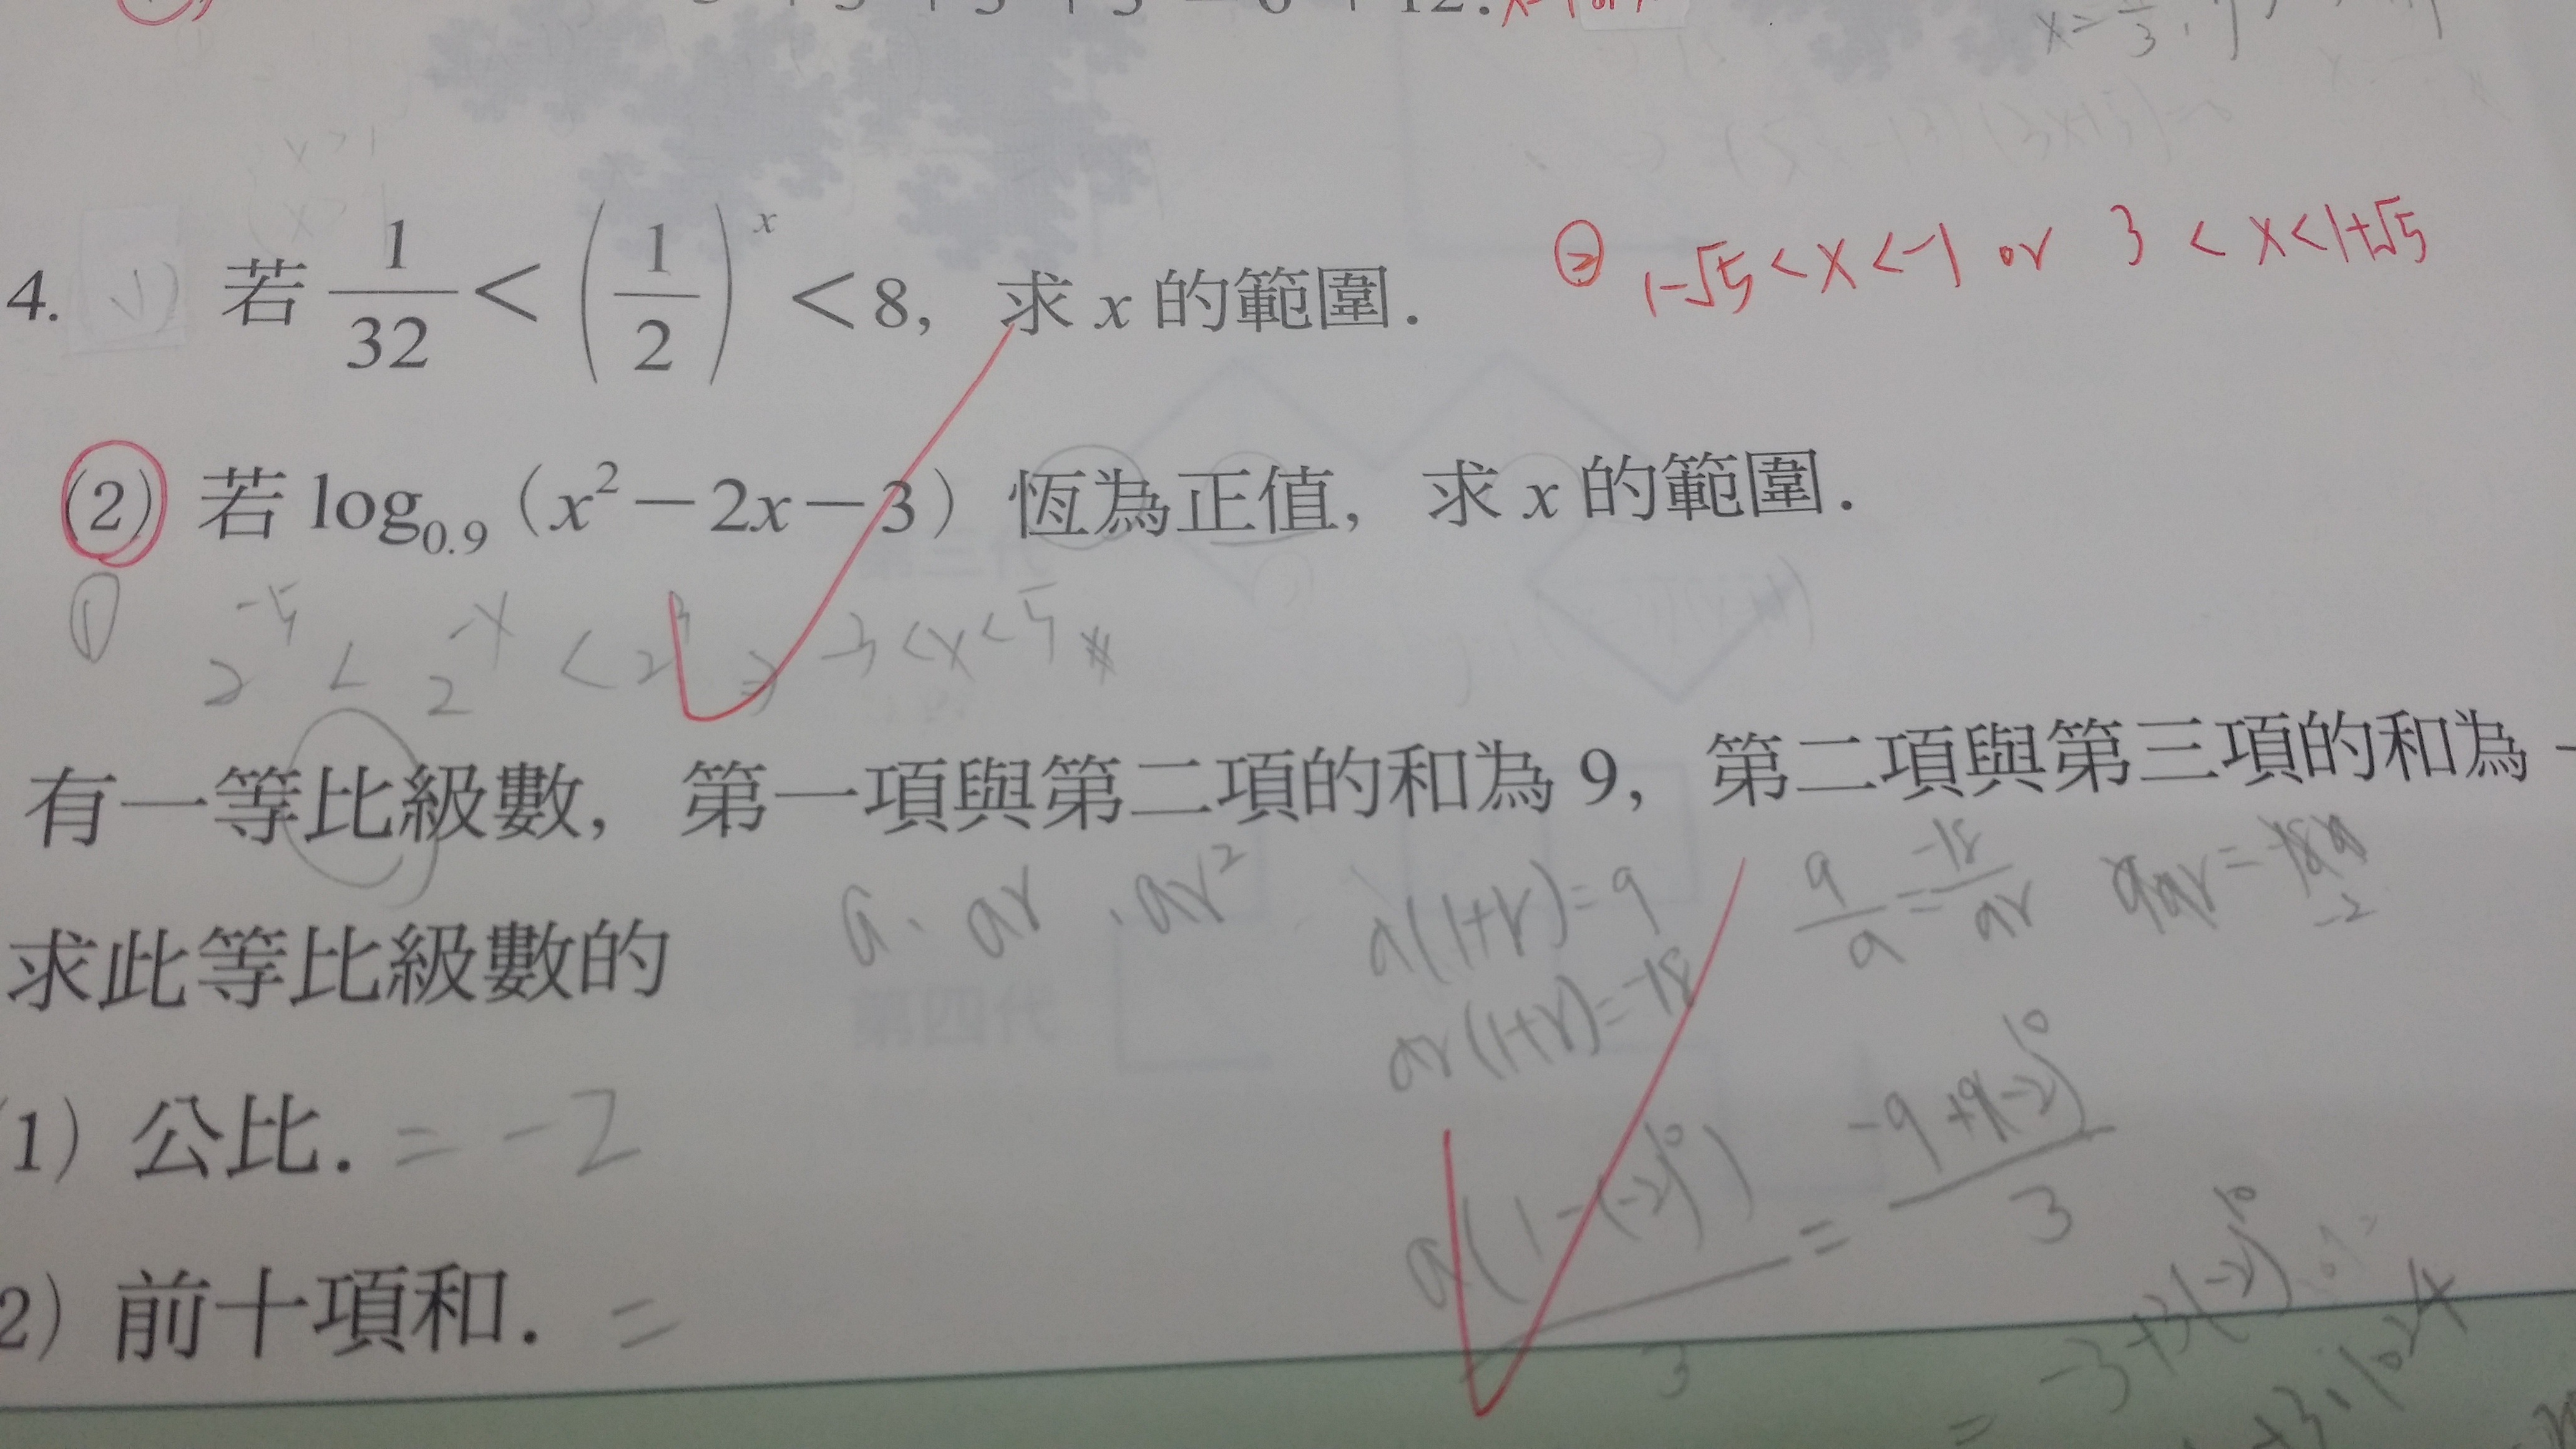 4. (1) 若 1/32 < (1/2)^x < 8, 求 x 的範圍.
② 1-√5 < x < -1 or 3 < x < 1+√5
(2) 若 log_0.9 (x²-2x-3) 恆為正值, 求 x 的範圍.
① 2^-5 < 2^-x < 2^3 ⇒ -3 < x < 5
有一等比級數, 第一項與第二項的和為 9, 第二項與第三項的和為 -
a、ar、ar² a(1+r)=9 9/a = -18/ar 9ar=
-2
求此等比級數的
ar(1+r)=-18
(1) 公比. = -2
a(1-(-2)^10)/3 = -9+9(-2)^10/3
(2) 前十項和. =
= -3+3(-2)^10
+3·1024